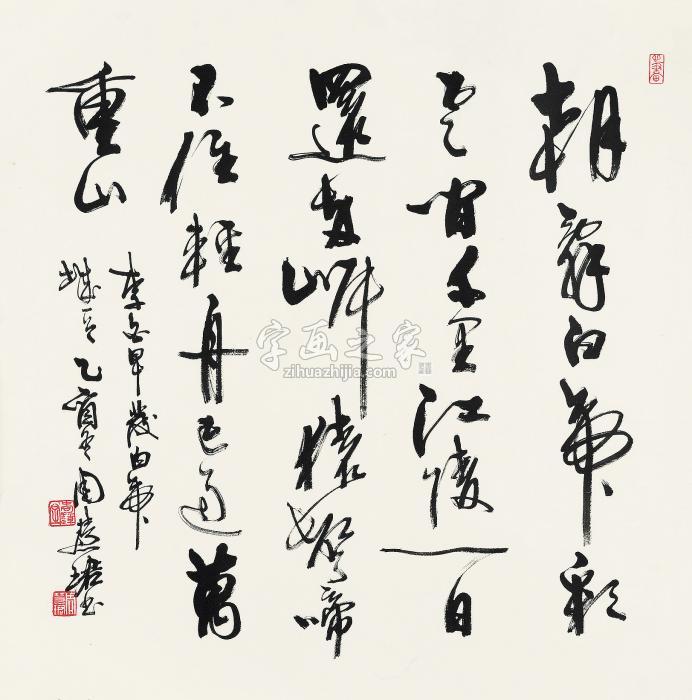 朝辭白帝彩
雲間千里江陵一日
還兩岸猿聲啼
不住輕舟已過萬
重山
李白早發白帝
城 乙酉冬周慧珺书
字画之家
zihuazhijia.com